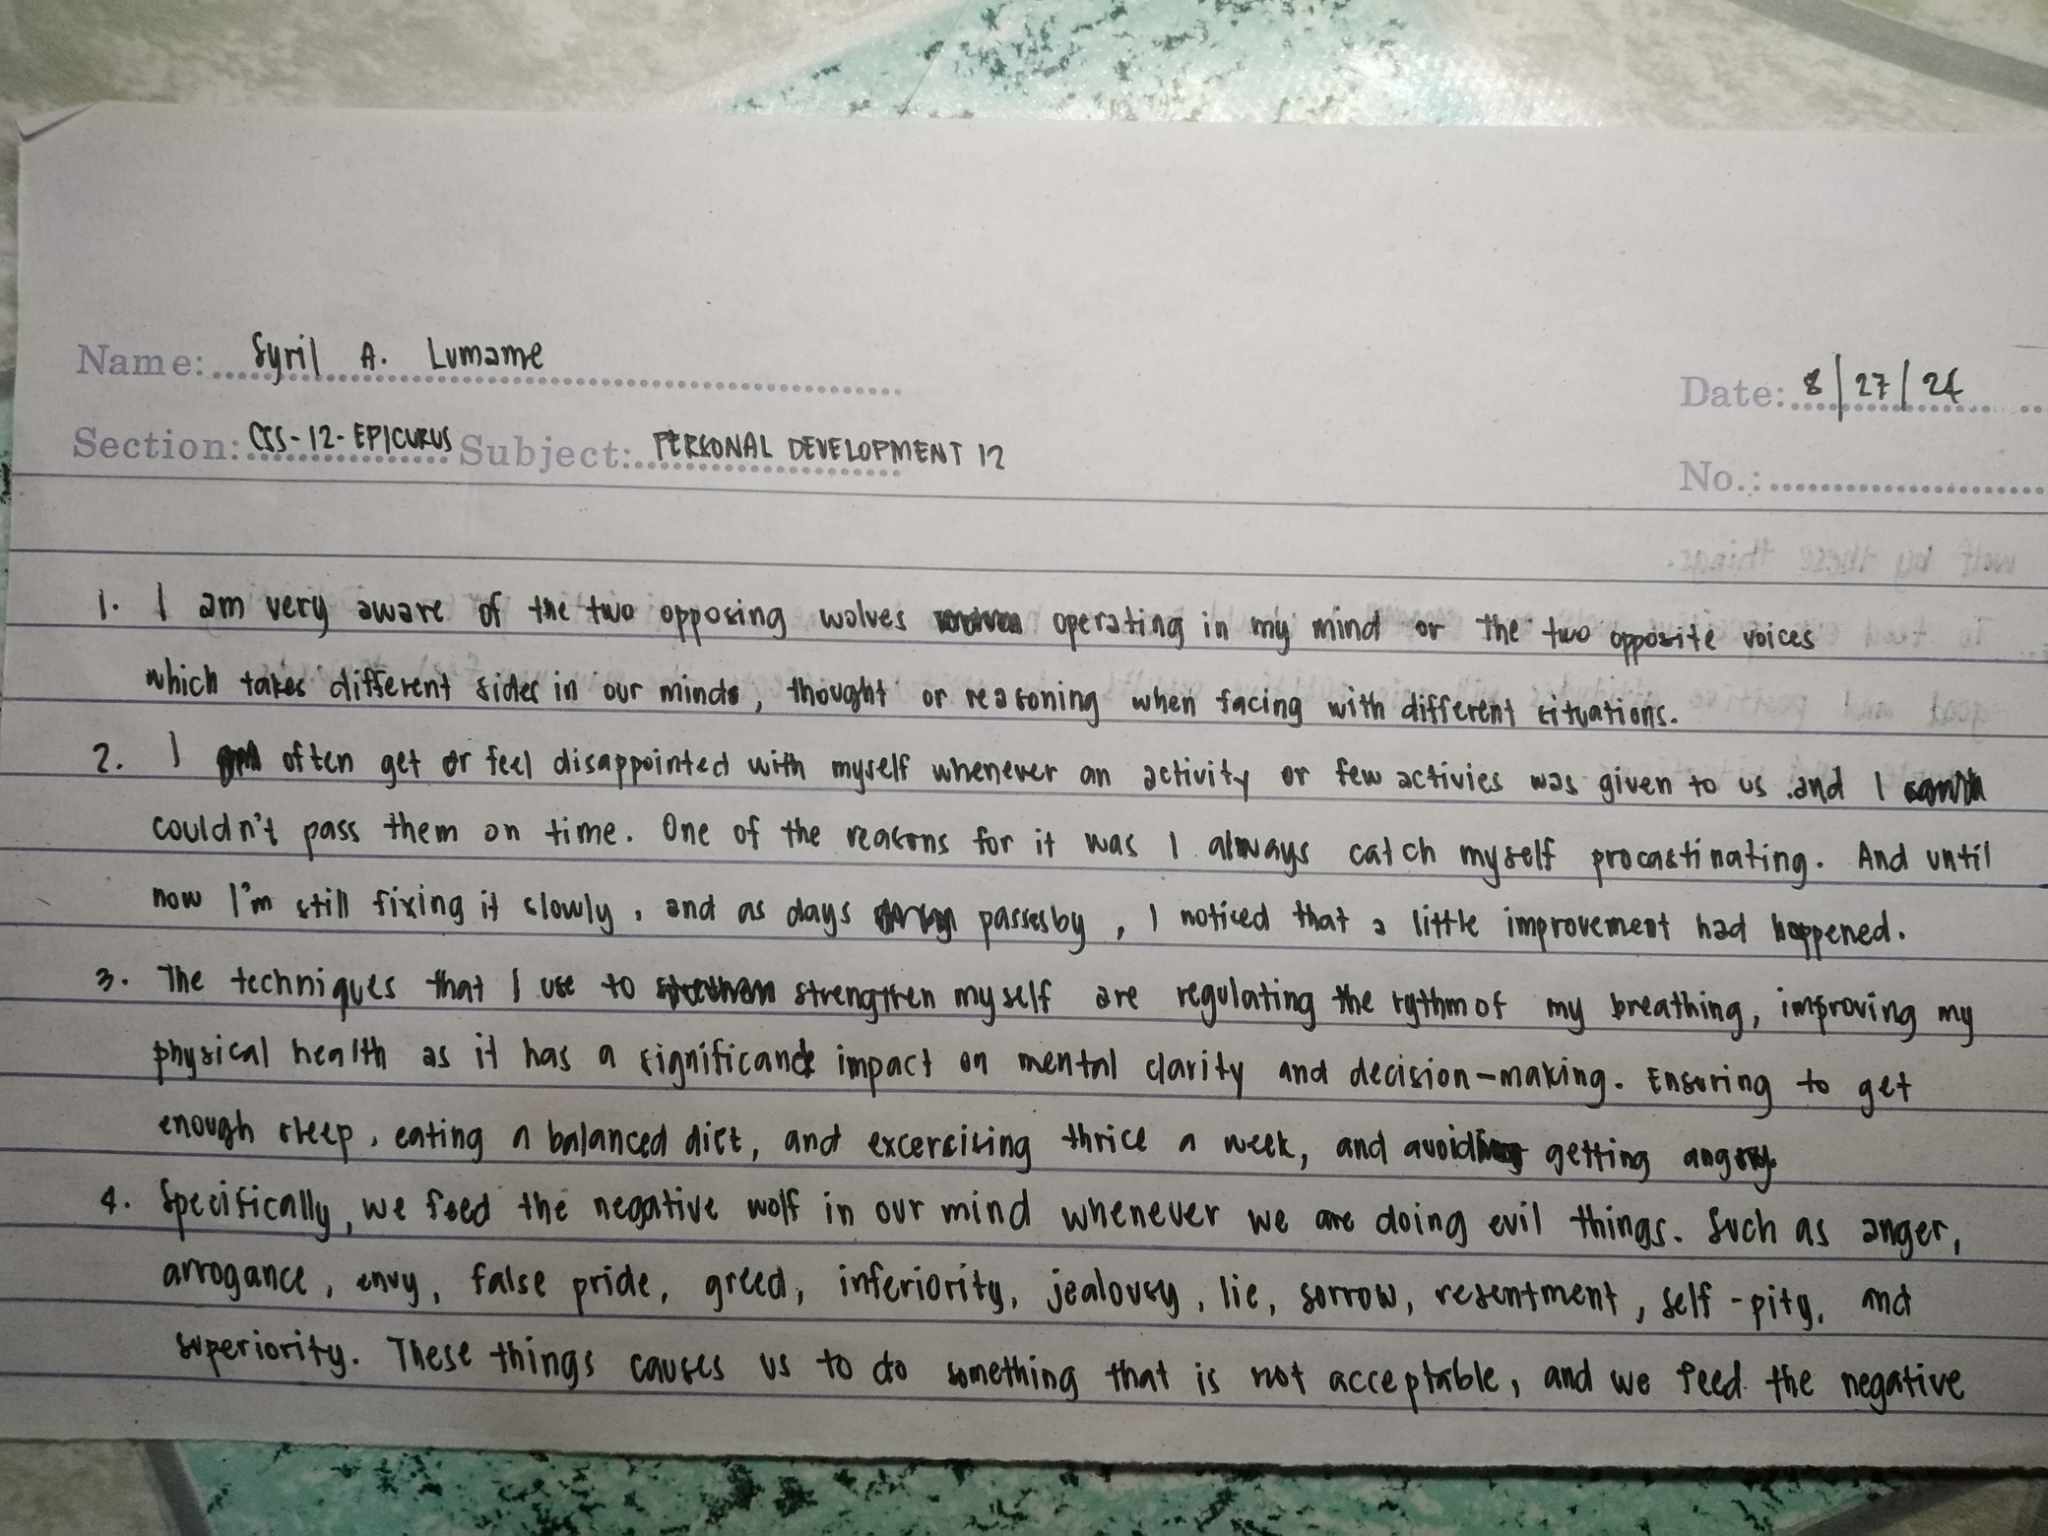 Name: Syril A. Lumame
Date: 8/27/24
Section: CSS-12-EPICURUS Subject: PERSONAL DEVELOPMENT 12
No.:
1. I am very aware of the two opposing wolves operating in my mind or the two opposite voices
which takes different sides in our minds, thought or reasoning when facing with different situations.
2. I often get or feel disappointed with myself whenever an activity or few activies was given to us and I
couldn't pass them on time. One of the reasons for it was I always catch myself procastinating. And until
now I'm still fixing it slowly, and as days passes by, I noticed that a little improvement had happened.
3. The techniques that I use to strengthen myself are regulating the rythm of my breathing, improving my
physical health as it has a significant impact on mental clarity and decision-making. Ensuring to get
enough sleep, eating a balanced diet, and excercising thrice a week, and avoiding getting angry.
4. Specifically, we feed the negative wolf in our mind whenever we are doing evil things. Such as anger,
arrogance, envy, false pride, greed, inferiority, jealousy, lie, sorrow, resentment, self-pity, and
superiority. These things causes us to do something that is not acceptable, and we feed the negative